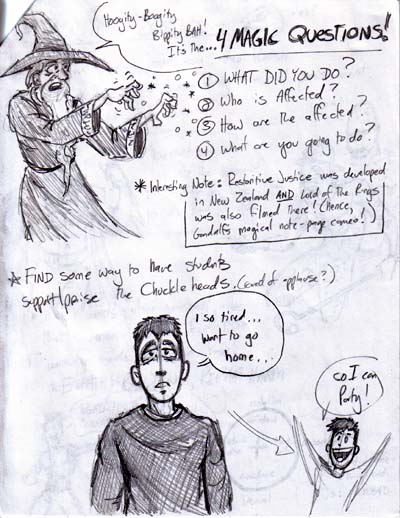 Hoogity-Boogity
Bippity BAH!
It's the... 4 MAGIC QUESTIONS!
① WHAT DID YOU DO?
② Who is Affected?
③ How are the affected?
④ What are you going to do?
* Interesting Note: Restoritive Justice was developed
in New Zealand AND Lord of The Rings
was also filmed there! (Hence,
Gandalf's magical note-page cameo!)
☆ FIND some way to have students
support/praise the Chuckleheads. (round of applause?)
I so tired...
want to go
home...
so I can
Party!